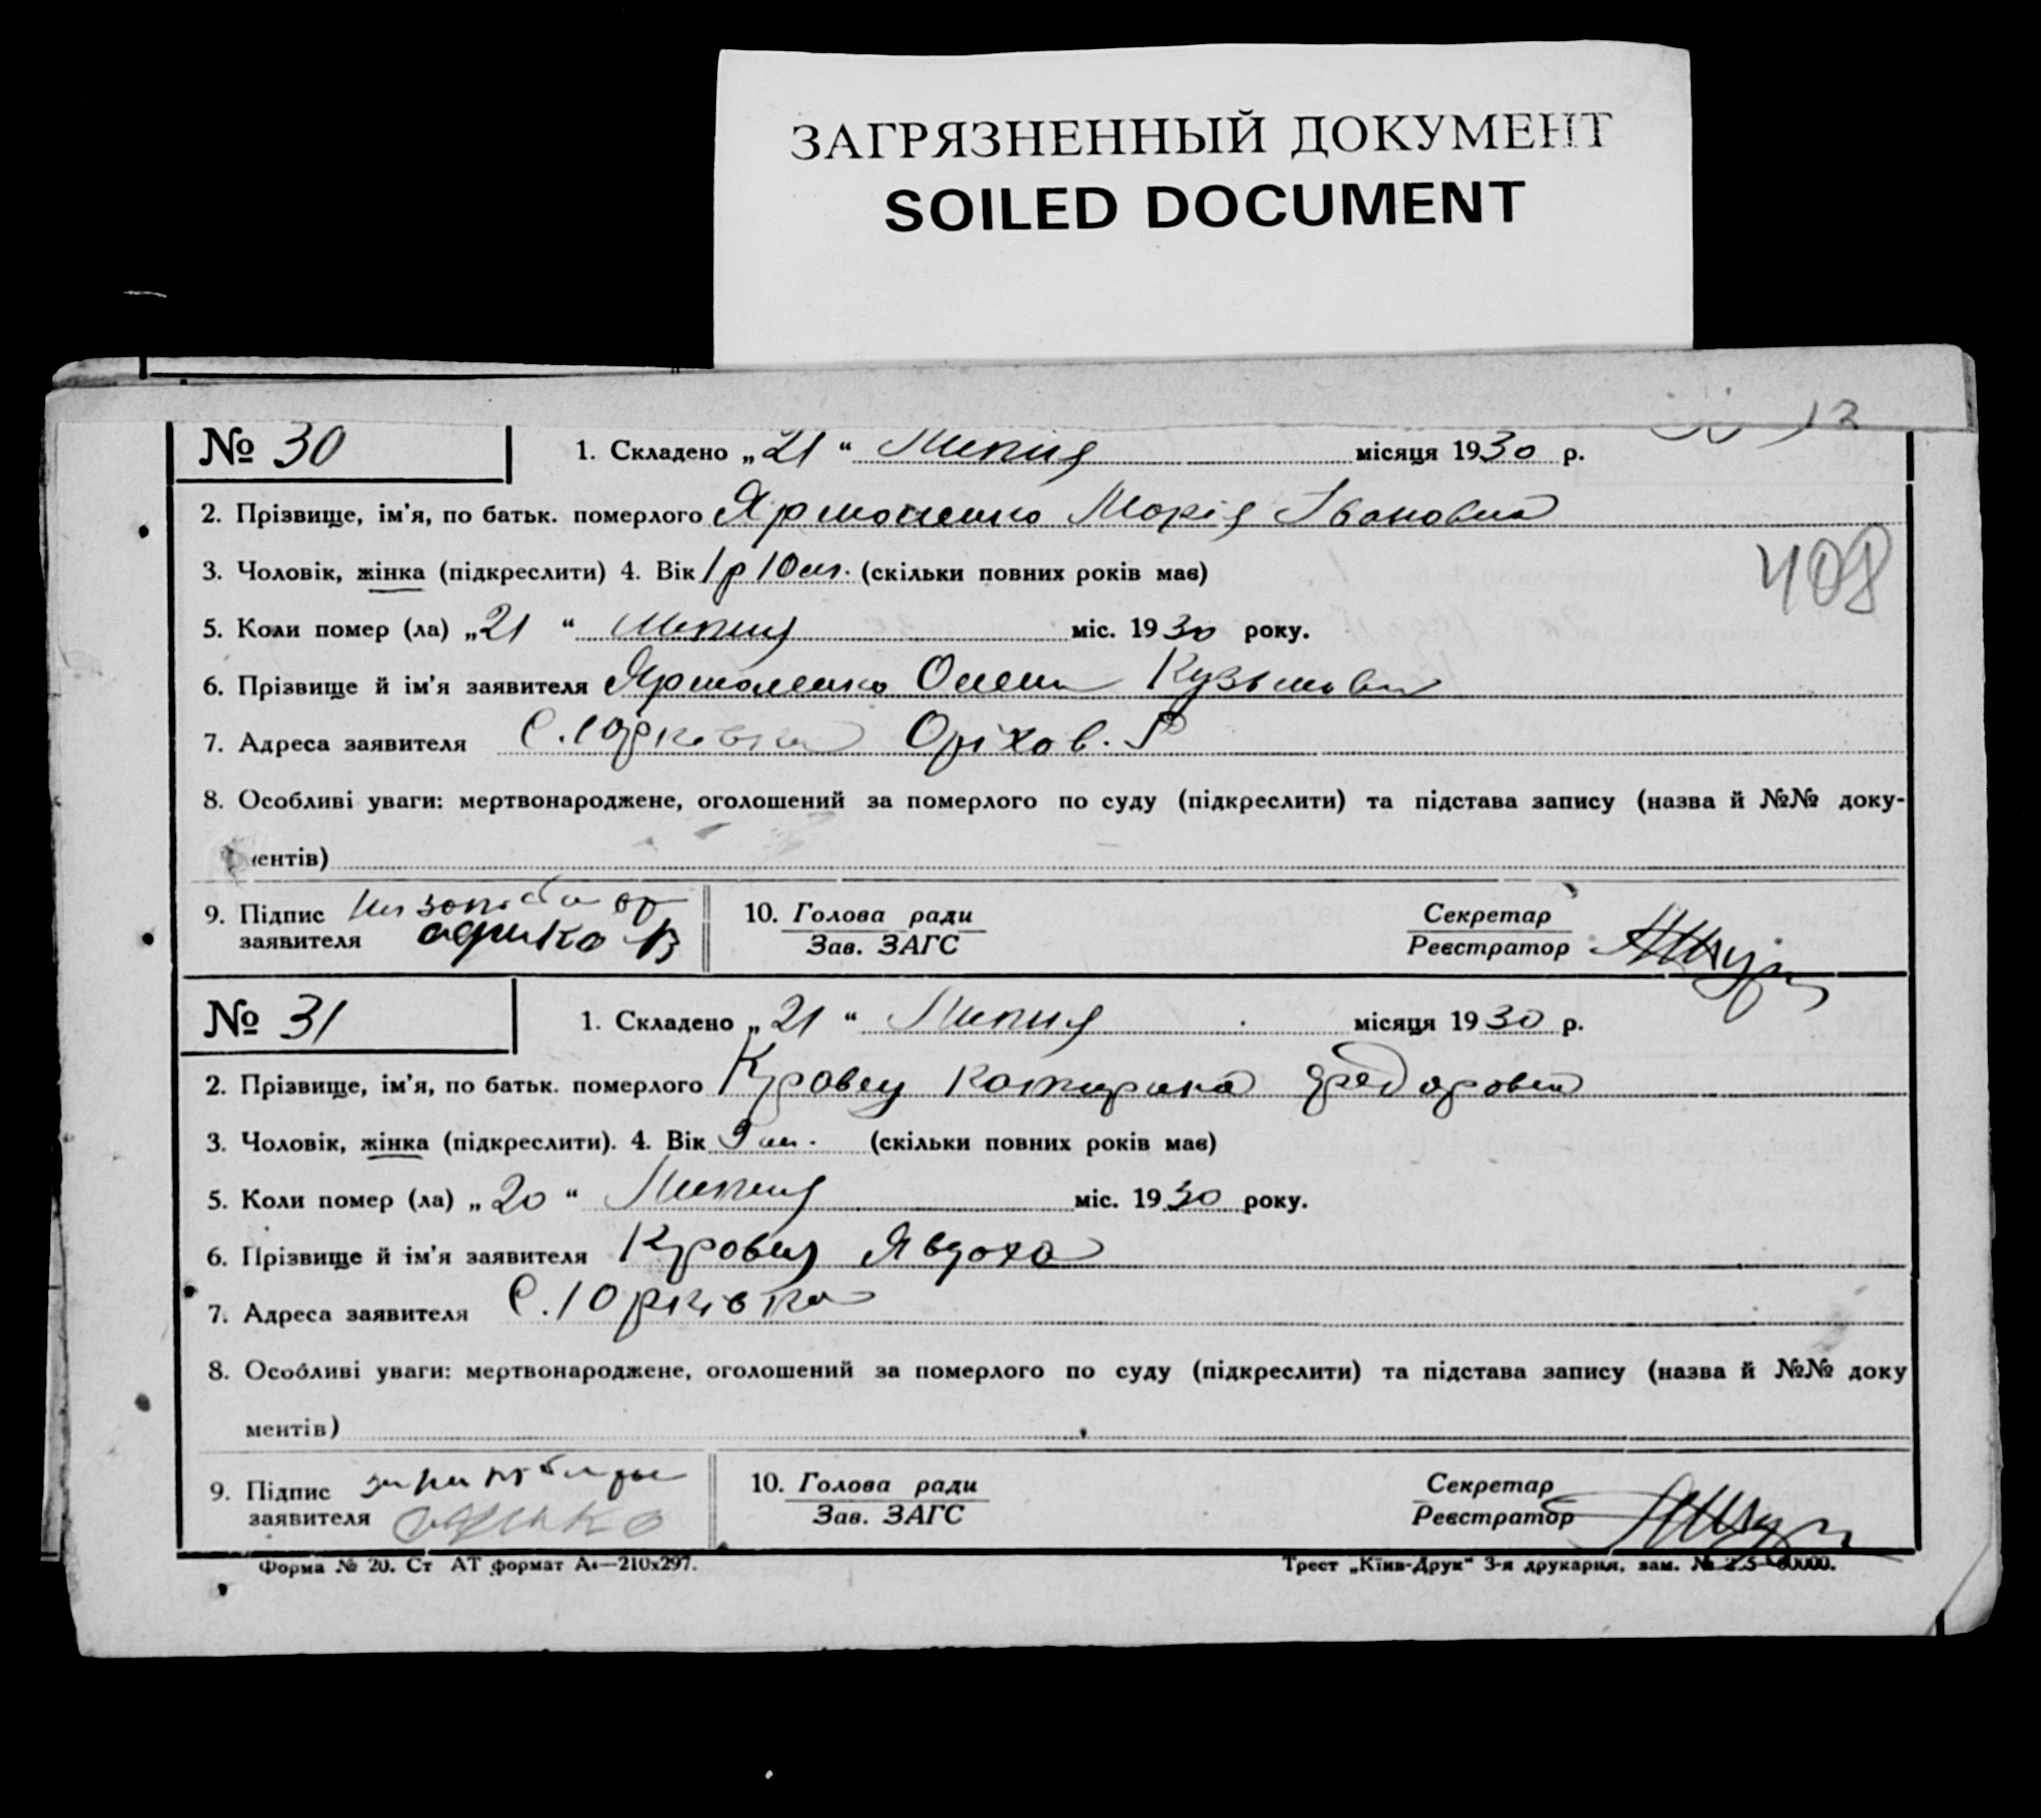 ЗАГРЯЗНЕННЫЙ ДОКУМЕНТ
SOILED DOCUMENT
№ 30 1. Складено „21“ Липня місяця 1930 р.
2. Прізвище, ім'я, по батьк. померлого Ярмоленко Марія Івановна
408
3. Чоловік, жінка (підкреслити) 4. Вік 1 р 10 м. (скільки повних років має)
5. Коли помер (ла) „21“ Липня міс. 1930 року.
6. Прізвище й ім'я заявителя Ярмоленко Олена Кузьмовна
7. Адреса заявителя С. Юрківка Оріхов. Р
8. Особливі уваги: мертвонароджене, оголошений за померлого по суду (підкреслити) та підстава запису (назва й №№ доку-
ментів)
9. Підпис
заявителя
10. Голова ради
Зав. ЗАГС
Секретар
Реєстратор
№ 31 1. Складено „21“ Липня місяця 1930 р.
2. Прізвище, ім'я, по батьк. померлого Кровец Катирина Федоровна
3. Чоловік, жінка (підкреслити). 4. Вік 9 м. (скільки повних років має)
5. Коли помер (ла) „20“ Липня міс. 1930 року.
6. Прізвище й ім'я заявителя Кровец Явдоха
7. Адреса заявителя С. Юрківка
8. Особливі уваги: мертвонароджене, оголошений за померлого по суду (підкреслити) та підстава запису (назва й №№ доку
ментів)
9. Підпис
заявителя
10. Голова ради
Зав. ЗАГС
Секретар
Реєстратор
Форма № 20. Ст АТ формат А4—210х297.
Трест „Київ-Друк“ 3-я друкарня, зам. №